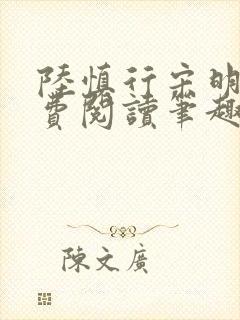 陸慎行宋明
費閱讀筆趣
陳文廣